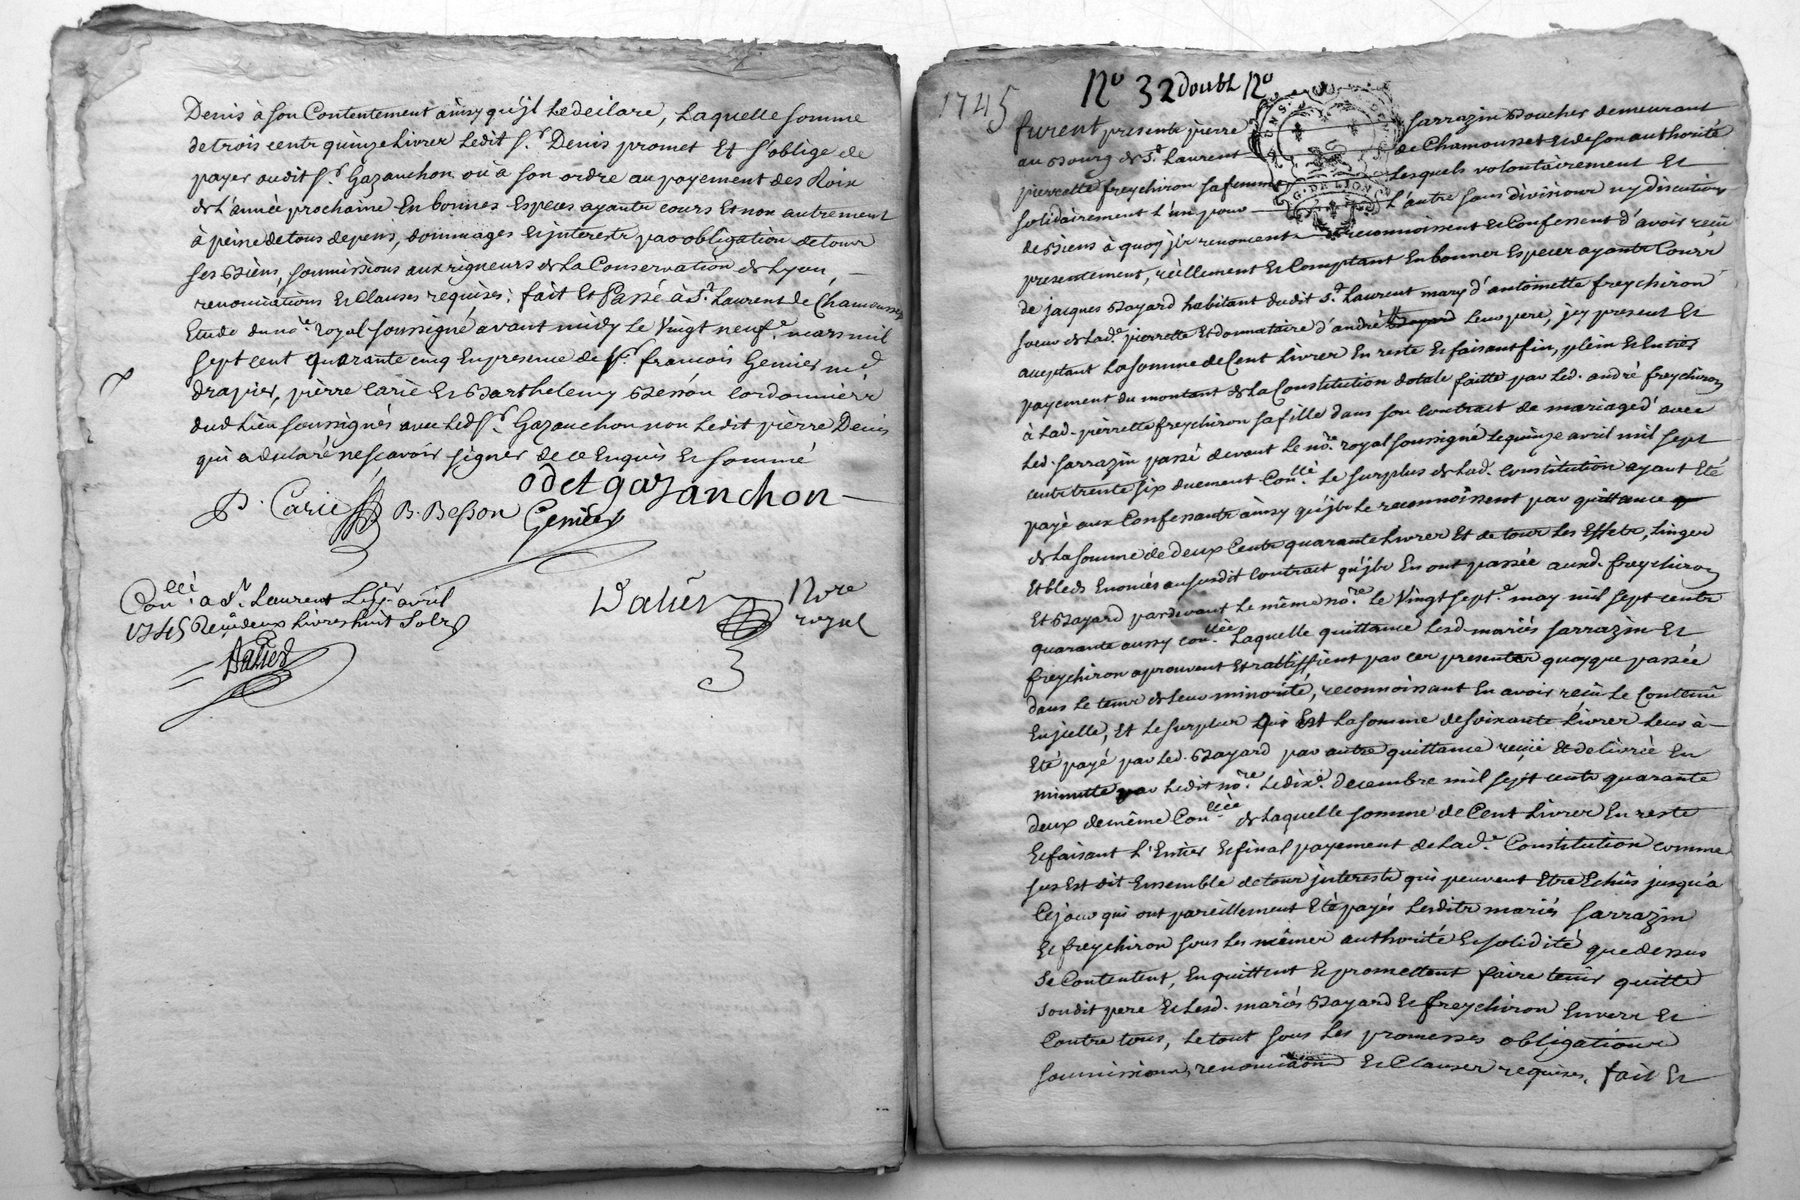 Denis à son Contentement ainsy qu'jl Le declare, Laquelle somme
de trois cents quinze Livres Ledit Sr. Denis promet Et s'oblige de
payer audit Sr. Gazanchon où à son ordre au payement des Roix
de L'année prochaine En bonnes Especes ayants cours Et non autrement
à peine de tous depens, dommages Et jnterests par obligation de tous
ses Biens, soumissions aux rigueurs de La Conservation de Lyon,
renonciations Et Clauses requises; fait Et Passé à St. Laurent de Chamousset
Etude du nore. royal soussigné avant midy Le Vingt neufe. mars mil
sept cent quarante cinq En presence de Sr. francois Genier md
drapier, pierre Carié Et Barthelemy Besson Cordonniers
dud Lieu soussignés avec Led Sr. Gazanchon non Ledit pierre Denis
qui a declaré ne scavoir signer de ce Enquis Et sommé
odet gazanchon
P. Carie B. Besson Genier
Conllé. a St. Laurent Le avril
1745 Reçu deux Livres huit Sols
Dalier
Dalier Nore
royal
1745
No 32 double No
furent presents pierre Sarrazin Boucher demeurant
au Bourg de St. Laurent de Chamousset Et de son authorité
pierrette freychiron sa femme Lesquels volontairement Et
solidairement L'un pour L'autre sans division ny discution
de Biens à quoy jls renoncent reconnoissent Et Confessent d'avoir reçu
presentement, réellement Et Comptant En bonnes Especes ayants Cours
de jacques Bayard habitant dudit St. Laurent mary d'antoinette freychiron
soeur de Lade. pierrette Et donnataire d'andré Leur pere, jcy present Et
acceptant La somme de Cent Livres En reste Et faisant fin, plein Et Entier
payement du montant de La Constitution dotale faitte par Led. andré freychiron
à Lad. pierrette freychiron sa fille dans son Contrat de mariage d'avec
Led. Sarrazin passé devant Le nore. royal soussigné Le quinze avril mil sept
cents trente six duement Conllé. Le surplus de Lad. Constitution ayant Eté
payé aux Confessants ainsy qu'jls Le reconnoissent par quittance
de La somme de deux Cents quarante Livres Et de tous Les Effets, Linges
Et bleds Enoncés au susdit Contrat qu'jls En ont passée auxd. freychiron
Et Bayard pardevant Le même nore. Le Vingt septe. may mil sept cents
quarante aussy conllée Laquelle quittance Lesd mariés Sarrazin Et
freychiron aprouvent Et rattiffient par ces presentes quoyque passée
dans Le tems de Leur minorité, reconnoissant En avoir reçu Le Contenu
En jcelle, Et Le surplus qui Est La somme de soixante Livres Leur à
Eté payé par Led. Bayard par autre quittance reçüe Et delivrée En
minutte par Ledit nore. Le dixe. decembre mil sept cents quarante
deux de même Conllée de Laquelle somme de Cent Livres En reste
Et faisant L'Entier Et final payement de Lade. Constitution comme
sus Est dit Ensemble de tous jnterests qui peuvent Etre Echûs jusqu'à
Ce jour qui ont pareillement Eté payés Lesdits mariés Sarrazin
Et freychiron sous Les mêmes authorité Et solidité que dessus
se Contentent, En quittent Et promettent faire tenir quitte
Soudit pere Et Lesd. mariés Bayard Et freychiron Envers Et
Contre tous, Le tout sous Les promesses obligations
soumissions, renonciation Et Clauses requises. fait Et